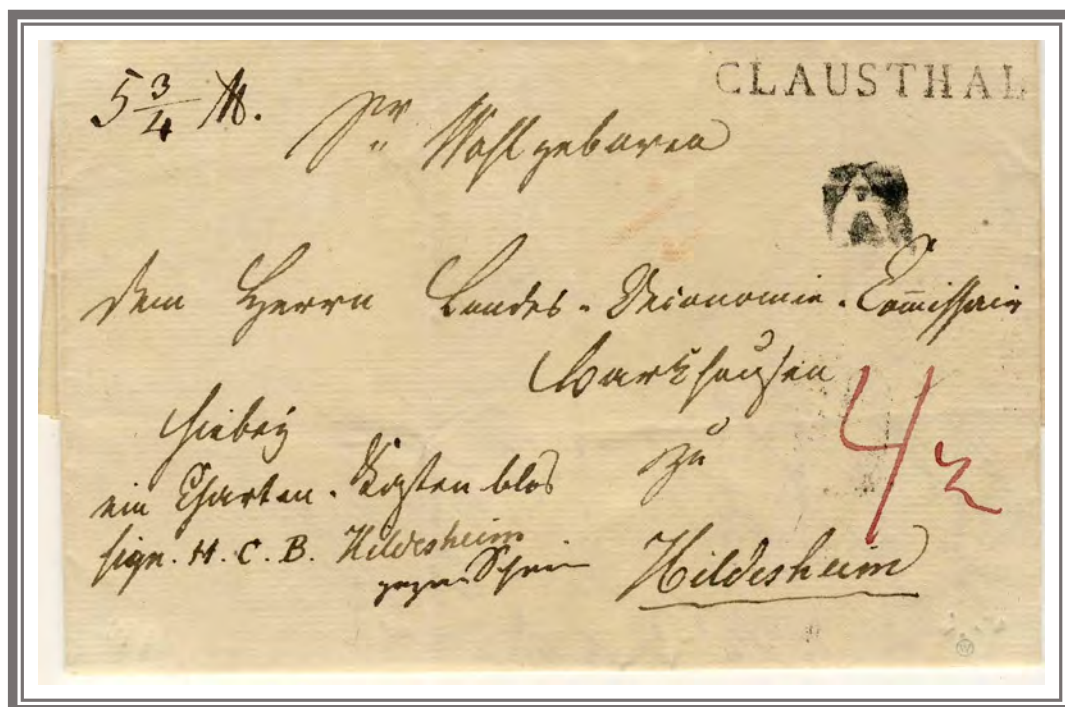 CLAUSTHAL
5 3/4 ℔.
Sr Wohlgeboren
A
dem Herrn Landes-Oeconomie-Com̄issair
zu
4
hiebey
ein Charten-Kasten blos
sign. H. C. B. Hildesheim
gegen Schein
Hildesheim